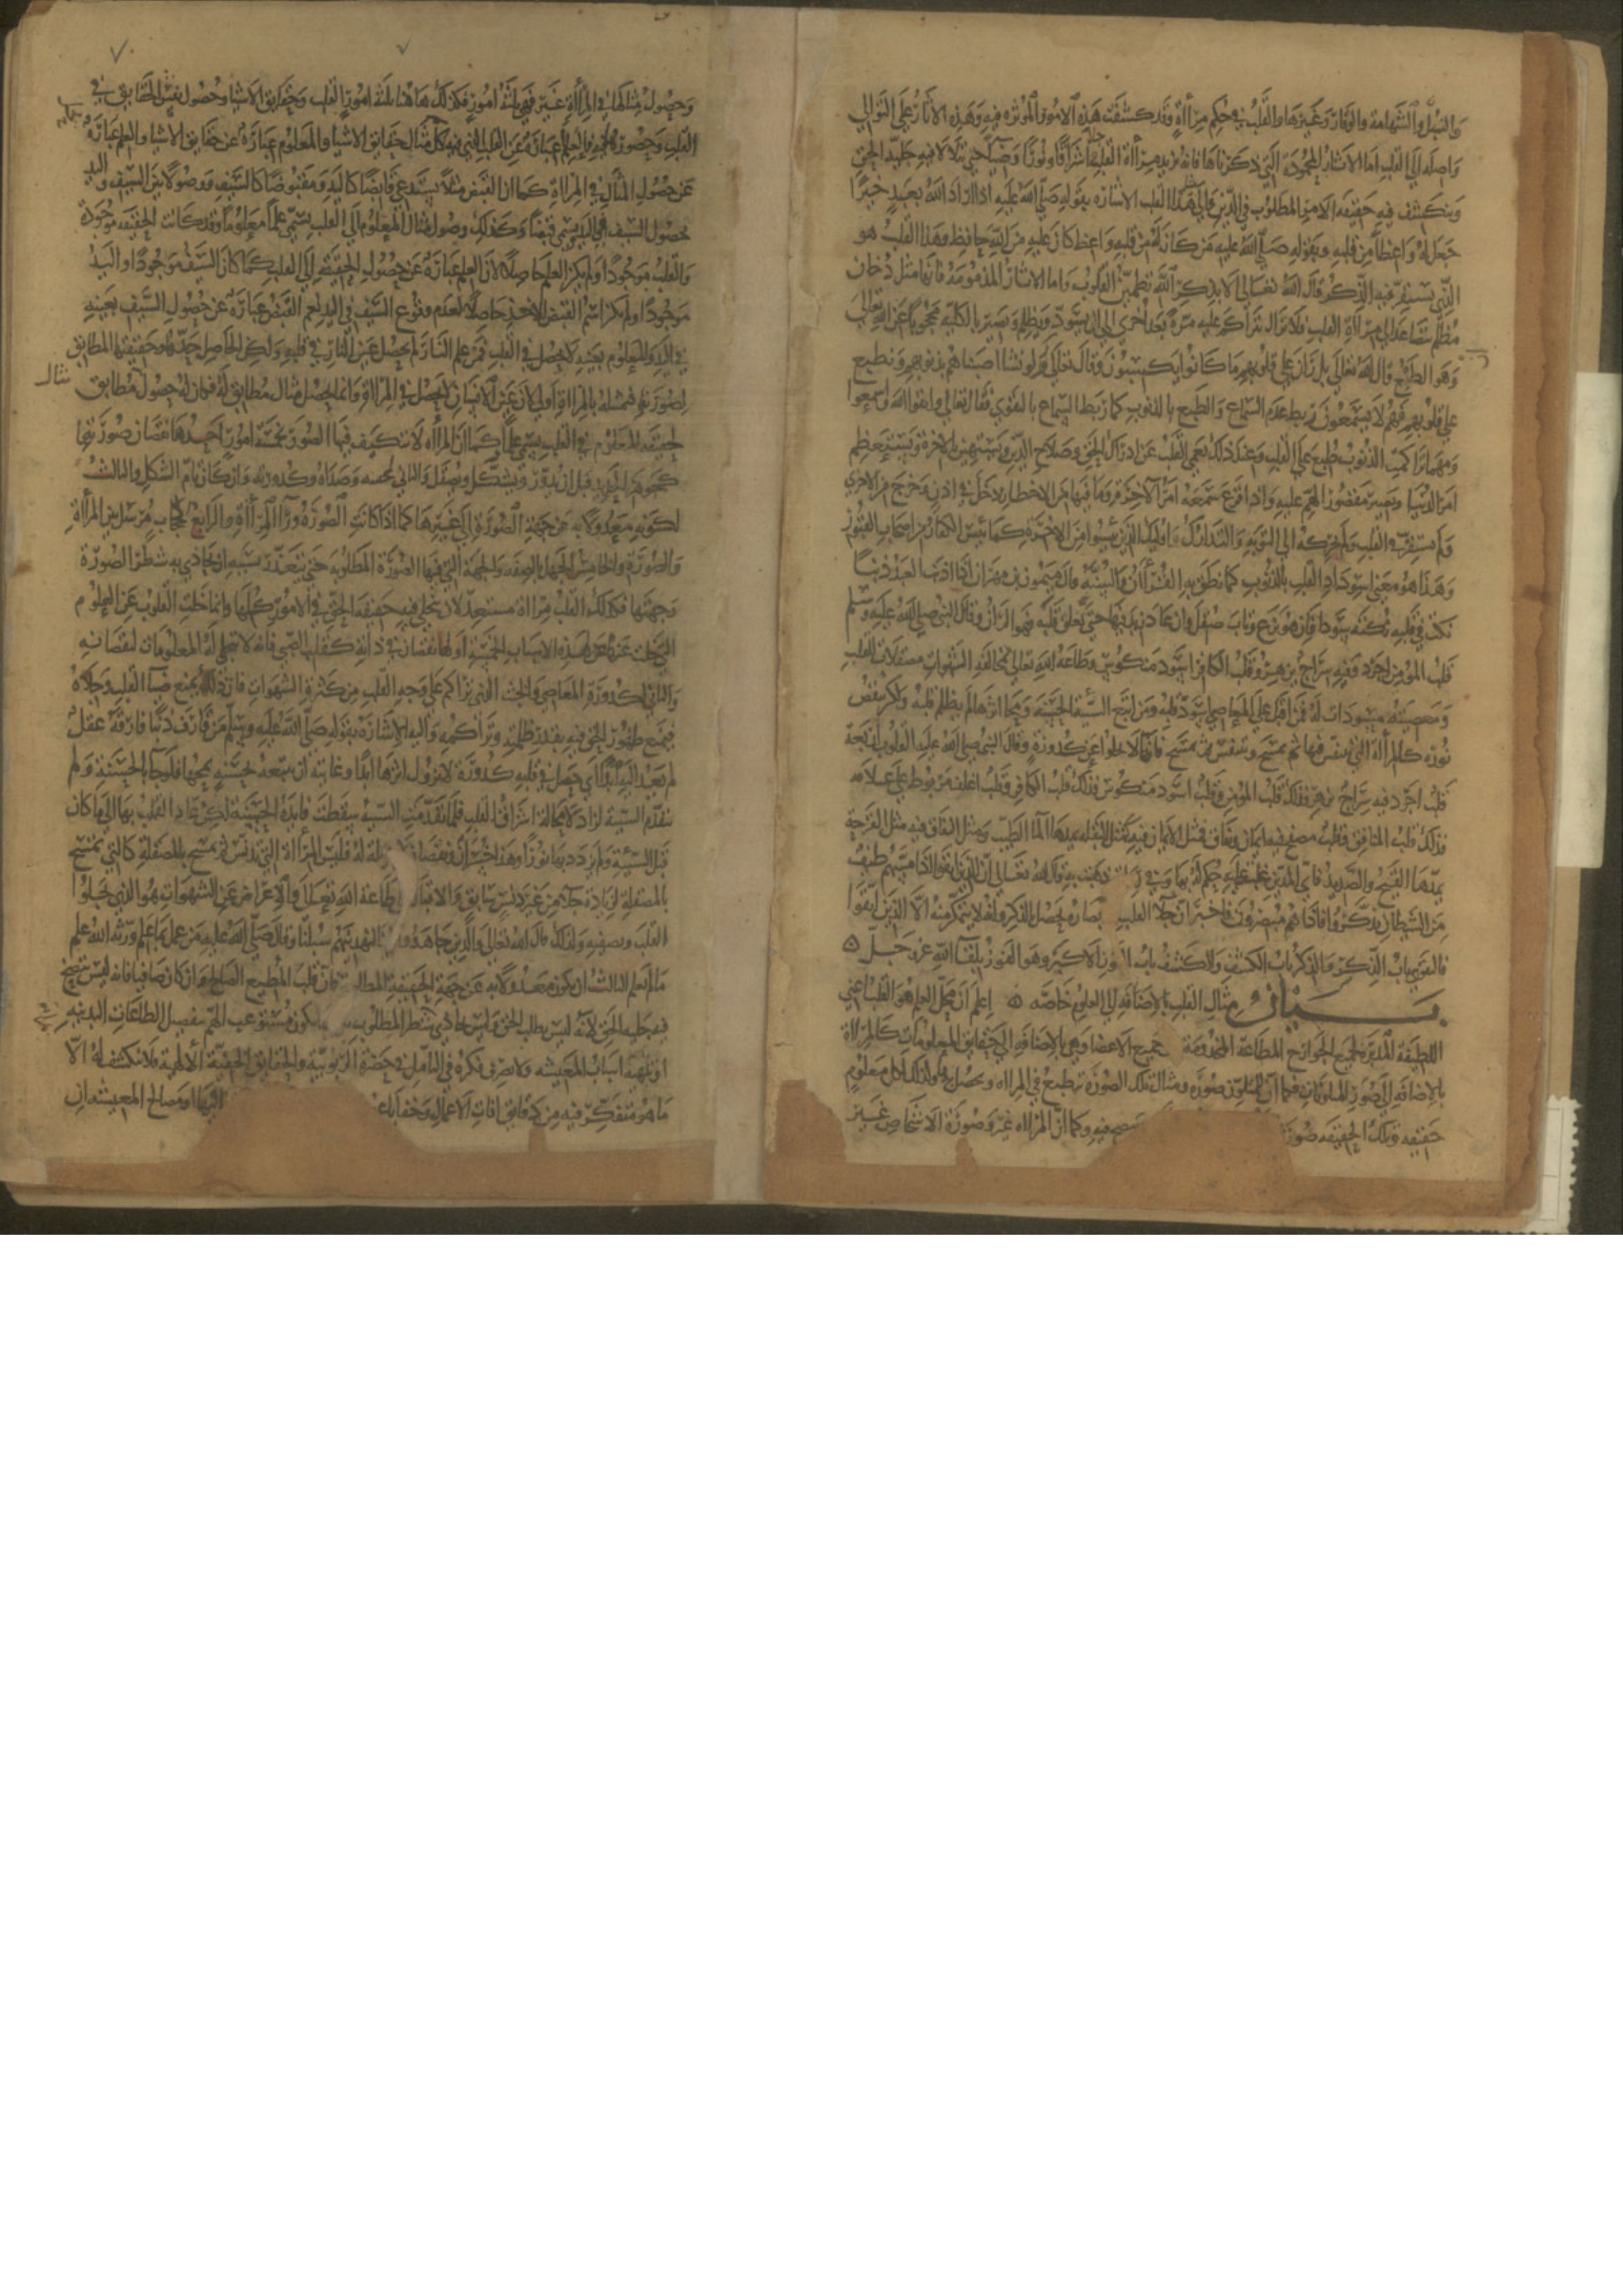 والنبل والشهامة والوقار وغيرها والقلب في حكم مرآة وقد كشفت هذه الامور المؤثره فيه وهذه الاثار على التوالي
واصلة الى القلب اما الاثار المحمودة التي ذكرناها فانها تزيد مرآة القلب جلا واشراقا ونورا وضياً حتى يتلالا فيه جلية الحق
وينكشف فيه حقيقه الامر المطلوب في الدين والى هذا القلب الاشاره بقوله صلى الله عليه اذا اراد الله بعبد خيرا
جعل له واعظا من قلبه وبقوله صلى الله عليه من كان له من قلبه واعظ كان عليه من الله حافظ وهذا القلب هو
الذي يستقر فيه الذكر قال الله تعالى الا بذكر الله تطمئن القلوب واما الاثار المذمومة فانها مثل دخان
مظلم يتصاعد الى مرآة القلب ولا يزال يتراكم عليه مرة بعد اخرى الى ان يسود ويظلم ويصير بالكلية محجوبا عن الله تعالى
وهو الطبع قال الله تعالى بل ران على قلوبهم ما كانوا يكسبون وقال تعالى ان لو نشا اصبناهم بذنوبهم ونطبع
على قلوبهم فهم لا يسمعون ربط عدم السماع والطبع بالذنوب كما ربط السماع بالتقوى فقال تعالى واتقوا الله واسمعوا
ومهما تراكمت الذنوب طبع على القلب وعند ذلك يعمى القلب عن ادراك الحق وصلاح الدين ويستهين بالاخرة ويستعظم
امر الدنيا ويصير مقصور الهم عليه واذا قرع سمعه امر الآخرة وما فيها من الاخطار دخل في اذن وخرج من الاخرى
ولم يستقر في القلب ولم يحركه الى التوبه والتدارك اوليك الذين يئسوا من الاخرة كما يئس الكفار من اصحاب القبور
وهذا هو معنى اسوداد القلب بالذنوب كما نطق به القرآن والسنة قال ميمون بن مهران اذا اذنب العبد ذنبا
نكت في قلبه نكتة سودا فان هو نزع وتاب صقل وان عاد زيد فيها حتى تعلو قلبه فهو الران وقال النبي صلى الله عليه وسلم
قلب المؤمن اجرد فيه سراج يزهر وقلب الكافر اسود منكوس وطاعة الله تعالى بمخالفة الشهوات مصقلات للقلب
ومعصيته مسودات له فمن اقبل على المعاصي اسود قلبه ومن اتبع السيئة الحسنة ومحا اثرها لم يظلم قلبه ولكن ينقص
نوره كالمرآة التي يتنفس فيها ثم تمسح ويتنفس ثم تمسح فانها لا تخلوا عن كدورة وقال النبي صلى الله عليه القلوب اربعة
قلب اجرد فيه سراج يزهر فذلك قلب المؤمن وقلب اسود منكوس فذلك قلب الكافر وقلب اغلف مربوط على غلافه
فذلك قلب المنافق وقلب مصفح فيه ايمان ونفاق فمثل الايمان فيه كمثل البقلة يمدها الما الطيب ومثل النفاق فيه مثل القرحة
يمدها القيح والصديد فاي المدتين غلبت عليه حكم له بها وفي ذهبت به قال الله تعالى ان الذين اتقوا اذا مسهم طيف
من الشيطان تذكروا فاذا هم مبصرون فاخبر ان جلا القلب بصاره يحصل بالذكر وانه لا يتمكن منه الا الذين اتقوا
فالتقوى باب الذكر والذكر باب الكشف والكشف باب الفوز الاكبر وهو الفوز بلقاء الله عز وجل
بيان مثال القلب بالاضافه الى العلوم خاصه اعلم ان محل العلم هو القلب اعني
اللطيفة المدبرة لجميع الجوارح المطاعة المخدومة جميع الاعضا وهي بالاضافه الى حقايق المعلومات كالمرآة
بالاضافه الى صور المتلونات فكما ان للمتلون صورة ومثال تلك الصورة ينطبع في المراه ويحصل بها وكذلك لكل معلوم
حقيقه ولتلك الحقيقه صورة فيه وكما ان المراه غير وصورة الاشخاص غير
وحصول مثالها في المرآة غير فهي ثلثة امور فكذلك هاهنا ثلثة امور القلب وحقايق الاشيا وحصول نفس الحقايق في
القلب وحضورها فيه فالعالم عبارة عن القلب الذي فيه يحل مثال حقايق الاشيا والمعلوم عبارة عن حقايق الاشيا والعلم عبارة
عن حصول المثال في المرآة كما ان القبض مثلا يستدعي قابضا كاليد ومقبوضا كالسيف ووصولا بين السيف واليد
بحصول السيف في اليد يسمى قبضا وكذلك وصول مثال المعلوم الى القلب يسمى علما معلوما وقد كانت الحقيقه موجودة
والقلب موجودا ولم يكن العلم حاصلا لان العلم عبارة عن حصول الحقيقه الى القلب كما كان السيف موجودا واليد
موجودا ولم يكن اسم القبض والاخذ حاصلا لعدم وقوع السيف في اليد نعم القبض عبارة عن حصول السيف بعينه
في اليد والمعلوم بعينه لا يحصل في القلب فمن علم النار لم يحصل عين النار في قلبه ولكن الحاصل حدها وحقيقتها المطابق
لصورتها فتمثيله بالمرآة اولى لان عين الانسان لا يحصل في المرآة وانما يحصل مثال مطابق له فكان له حصول مطابق
لحقيقة المعلوم في القلب يسمى علما كما ان المرآه لا تنكشف فيها الصور لخمسة امور احدها نقصان صورتها
كجوهر الحديد قبل ان يدور ويشكل ويصقل والثاني لخبثه وصداه وكدورته وان كان تام الشكل والثالث
لكونه معدولا به عن جهة الصورة الى غيرها كما اذا كانت الصورة ورآ المرآة والرابع لحجاب مرسل بين المرآة
والصورة والخامس للجهل بالصفه والجهة التي فيها الصورة المطلوبه حتى يتعذر بسببه ان يحاذي به شطر الصورة
وجهتها فكذلك القلب مرآة مستعد لان يتجلى فيه حقيقه الحق في الامور كلها وانما خلت القلوب عن العلوم
التي خلت عنها لهذه الاسباب الخمسة اولها نقصان في ذاته كقلب الصبي فانه لا تتجلى له المعلومات لنقصانه
والثاني لكدورة المعاصي والخبث الذي تراكم على وجه القلب من كثرة الشهوات فان ذلك يمنع صفآ القلب وجلاءه
فيمنع ظهور الحق فيه بقدر ظلمته وتراكمه واليه الاشارة بقوله صلى الله عليه وسلم من قارف ذنبا فارقه عقل
لم يعد اليه ابدا اي حصل في قلبه كدورة لا يزول اثرها ابدا وغايته ان يتبعه بحسنة يمحها فلو جا بالحسنة ولم
تتقدم السيئة لازداد لا محالة اشراق القلب فلما تقدمت السيئة سقطت فايدة الحسنة لكن عاد القلب بها الى ما كان
قبل السيئة ولم يزدد بها نورا وهذا خسران ونقصان لا حيلة له فليس المرآة التي تدنس ثم تمسح بالمصقلة كالتي تمسح
بالمصقلة لزيادة جلآء من غير دنس سابق والاقبال طاعة الله تعالى والاعراض عن الشهوات هو الذي يجلوا
القلب ويصفيه ولذلك قال الله تعالى والذين جاهدوا لنهدينهم سبلنا وقال صلى الله عليه من عمل بما علم ورثه الله علم
ما لم يعلم الثالث ان يكون معدولا به عن جهة الحقيقة المطلوبة فان قلب المطيع الصالح وان كان صافيا فانه ليس يتضح
فيه جلية الحق لانه ليس يطلب الحق وليس يحاذي شطر المطلوب يكون مستوعب الهم بتفصيل الطاعات البدنية
او تهيئة اسباب المعيشه ولا يصرف فكره في التامل في حضرة الربوبية والحقايق الخفية الالهية فلا ينكشف له الا
ما هو متفكر فيه من دقايق افات الاعمال وخفايا اليها او مصالح المعيشة ان